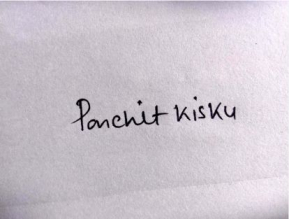 Panchit Kisku